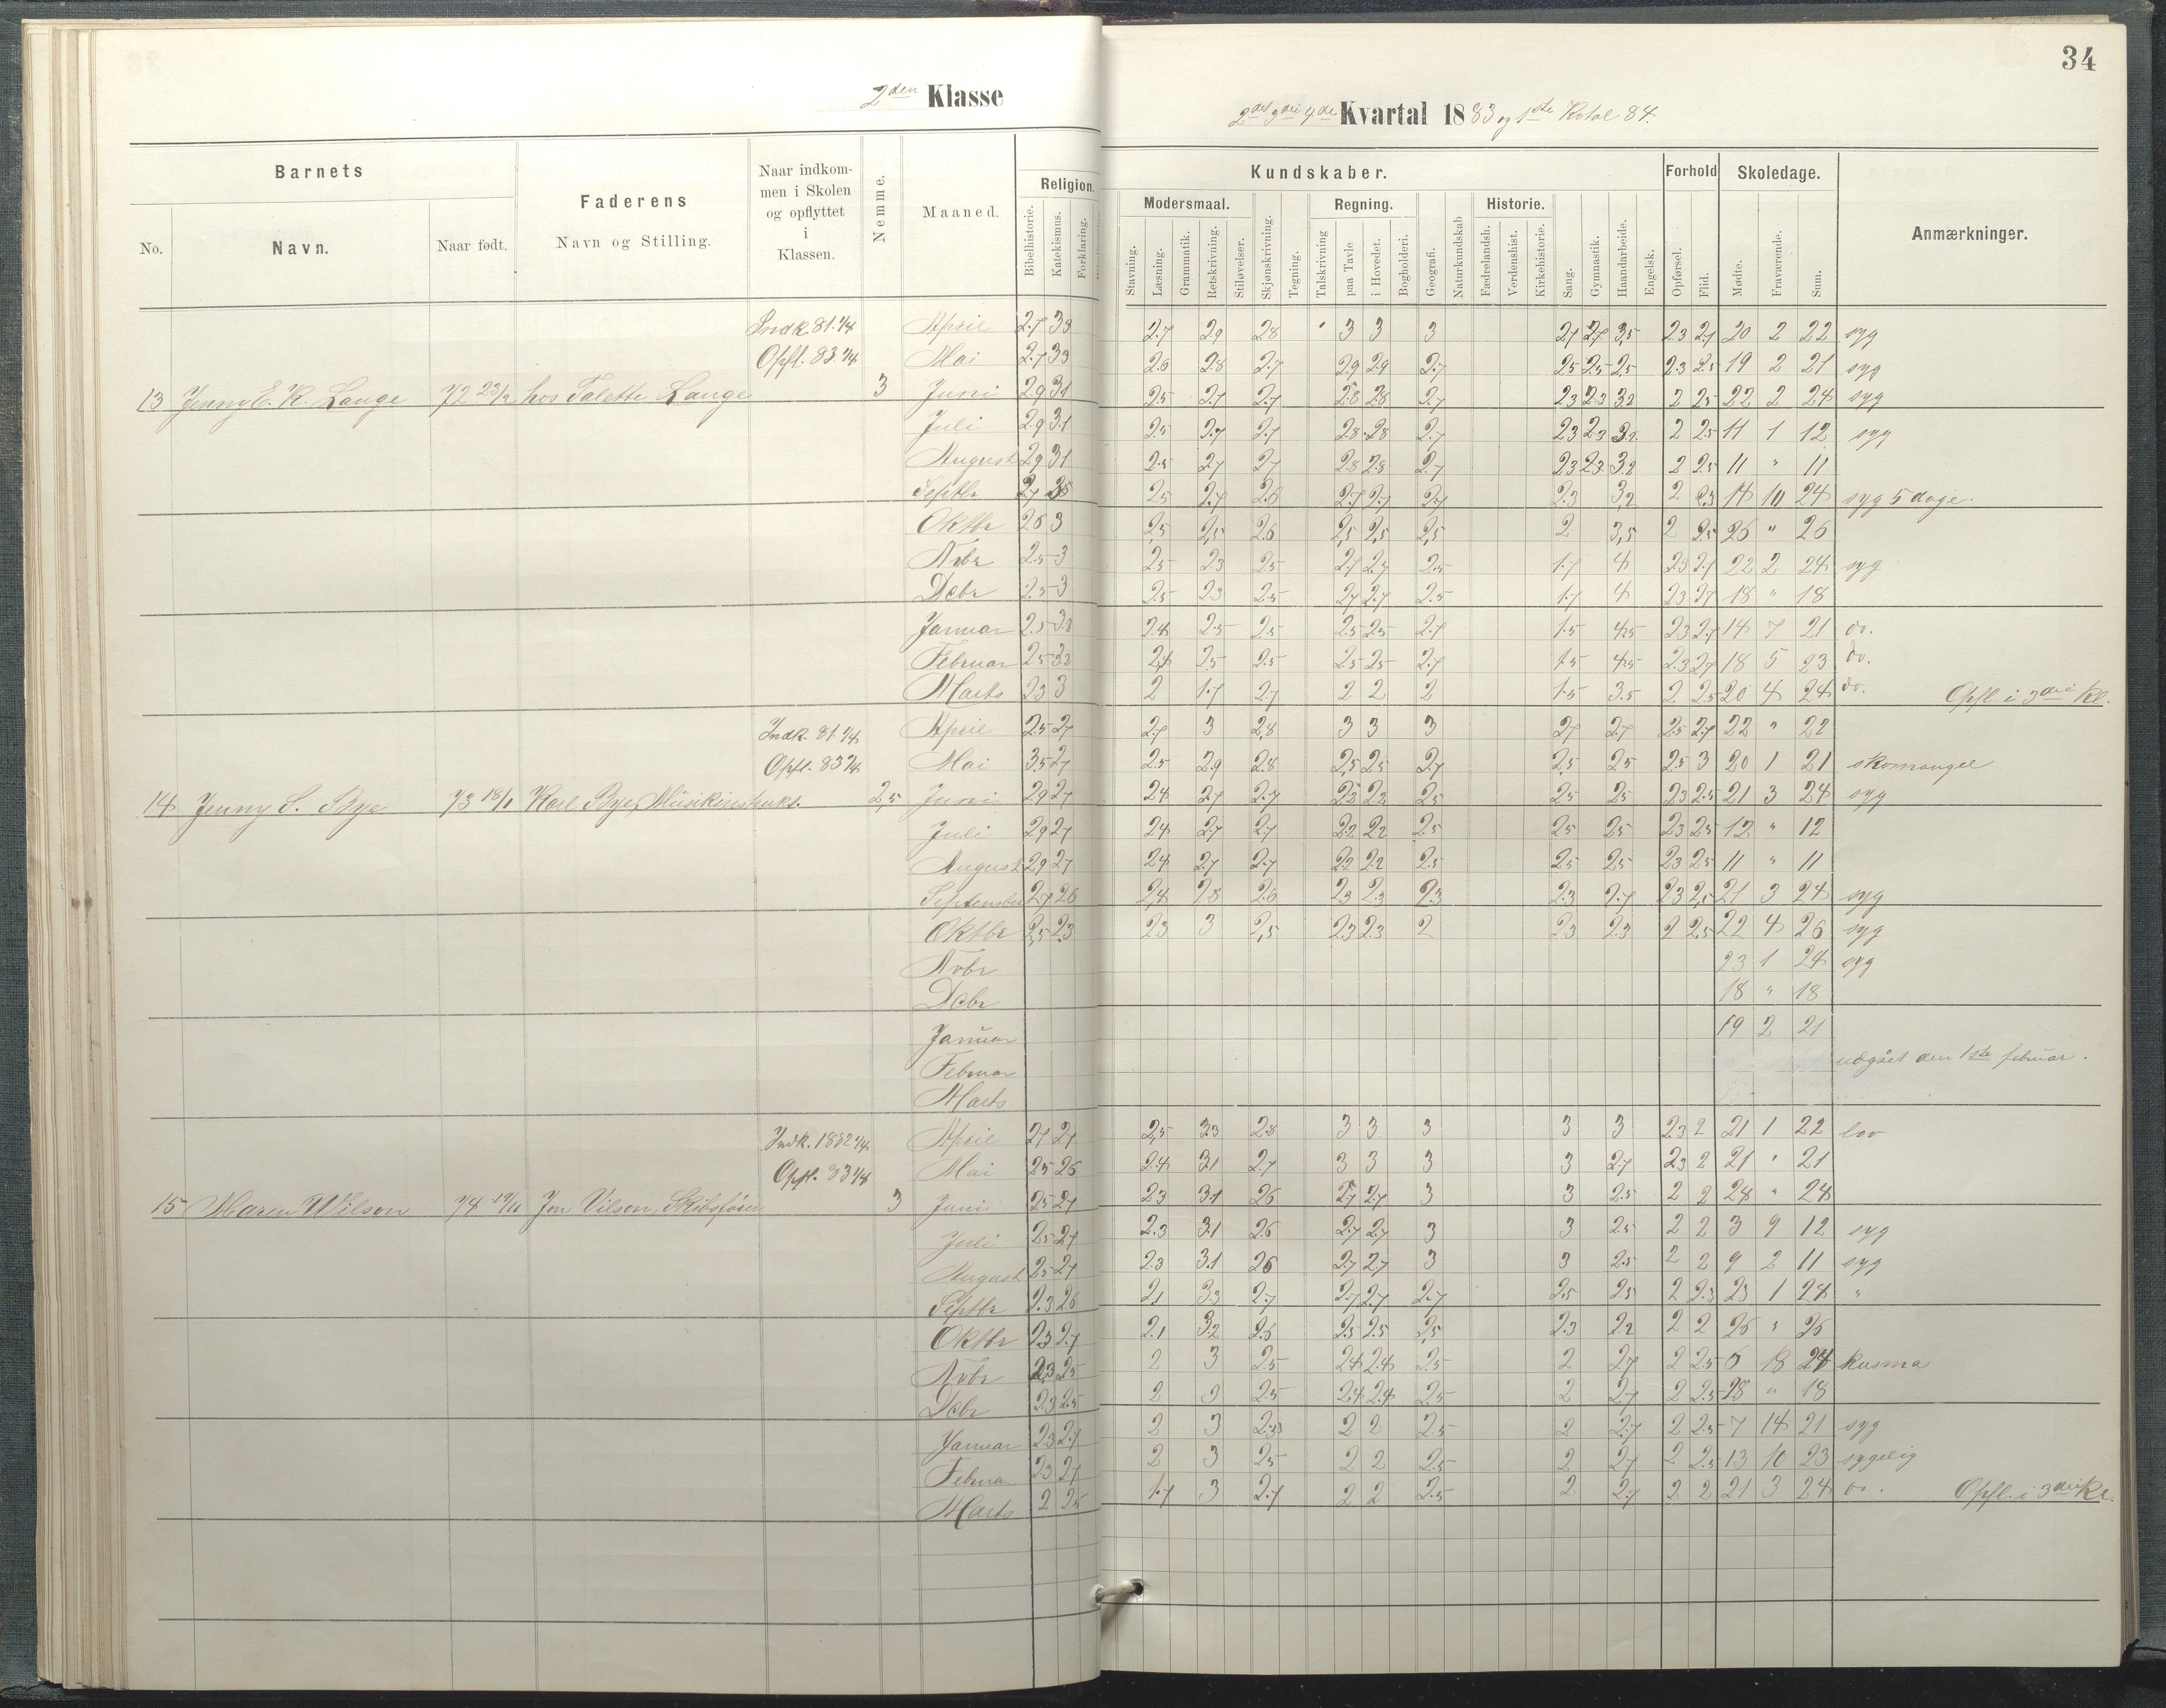 34
2den Klasse
2det 3die 4de Kvartal 1883 og 1ste Kvtal 84.
Barnets
Naar indkommen i Skolen og opflyttet i Klassen.
Nemme.
Maaned.
Religion.
Kundskaber.
Forhold
Skoledage.
Anmærkninger.
No.
Navn.
Naar født.
Faderens
Navn og Stilling.
Bibelhistorie.
Katekismus.
Forklaring.
Modersmaal.
Regning.
Historie.
Stavning.
Læsning.
Grammatik.
Retskrivning.
Stiløvelser.
Skjønskrivning.
Tegning.
Talskrivning
paa Tavle
i Hovedet.
Bogholderi.
Geografi.
Naturkundskab
Fædrelandsh.
Verdenshist.
Kirkehistorie.
Sang.
Gymnastik.
Haandarbeide.
Engelsk.
Opførsel.
Flid.
Mødte.
Fraværende.
Sum.
Indk. 81. 1/4 April 2.7 33 2.7 2.9 2.8 3 3 3 2.7 2.7 3,5 2.3 2.7 20 2 22 syg
Opfl. 83 1/4 Mai 2.7 33 2.6 2.8 2.7 2.9 2.9 2.7 25 25 25 2.3 2.5 19 2 21 syg
13 Jenny E. K. Lange 72 23/2 hos Talette Lange 3 Juni 2.9 31 2.5 2.7 2.7 2.8 2.8 2.7 23 23 32 2 25 22 2 24 syg
Juli 2.9 3.1 2.5 2.7 2.7 2.8 2.8 2.7 23 23 32 2 2.5 11 1 12 syg
August 2.9 31 2.5 27 27 2.8 2.8 2.7 23 23 32 2 2.5 11 " 11
Septbr 2.7 35 25 2.7 2.6 2.7 2.7 2.7 2.3 3,2 2 2.3 14 10 24 syg 5 dage.
Oktbr 26 3 2,5 2,5 2.6 2,5 2,5 2,5 2 3,5 2 2.5 26 " 26
Nvbr 2.5 3 2.5 2.3 2.5 2.7 2.7 2.5 1.7 4 23 2.7 22 2 24 syg
Decbr 2.5 3 2.5 23 2.5 27 2.7 2.5 1.7 4 23 27 18 " 18
Januar 2.5 32 2.4 2.5 2.5 2.5 25 2.7 1.5 45 23 2.7 14 7 21 do.
Februar 25 32 2,4 2,5 2.5 25 25 2.7 1.5 45 2.3 27 18 5 23 do.
Marts 23 3 2 1.7 2.7 2 2 2 1.5 3.5 2 2.5 20 4 24 do. Opfl. i 3die Kl.
Indk. 81. 1/4 April 2.5 27 2.7 3 2,8 3 3 3 27 2.7 2.5 2.7 22 " 22
Opfl. 83 1/4 Mai 3.5 27 2.5 2.9 2.8 2,5 25 2.7 2.5 25 25 3 20 1 21 skomangel
14 Jenny S. Bye 73 18/1 Karl Bye, Musikinstrukt. 2,5 Juni 29 27 24 2.7 2.7 22 22 25 25 25 23 2.5 21 3 24 syg
Juli 29 27 24 2.7 2.7 22 22 2.5 25 25 23 25 12 " 12
August 29 27 24 2.7 2.7 22 22 2.5 25 25 23 25 11 " 11
September 2.7 26 2,4 28 26 23 2.3 2.3 2.3 2.7 2.3 2,5 21 3 24 syg
Oktbr 2,5 23 23 3 2,5 23 2.3 2 23 2.3 2 2,5 22 4 26 syg
Nvbr 23 1 24 syg
Decbr 18 " 18
Januar 19 2 21
Februar udgået den 1ste februar.
Marts
Indk. 1882 1/4 April 27 27 2,5 33 2.8 3 3 3 3 3 2.3 2 21 1 22 lov
Opfl. 83 1/4 Mai 25 26 2.4 31 2.7 3 3 3 3 2.7 23 2 21 " 21
15 Maren Wilson 74 19/11 Jon Vilson, Skibsfører 3 Juni 25 27 23 3.1 26 2.7 2.7 3 3 2.5 2 2 24 " 24
Juli 25 27 2.3 3.1 2.6 2.7 2.7 3 3 2.5 2 2 3 9 12 syg
August 25 27 2.3 3.1 26 2.7 2.7 3 3 2.5 2 2 9 2 11 syg
Septbr 2.3 26 21 33 2.7 2.7 2.7 2.7 2.5 25 2 2.3 23 1 24 "
Oktbr 2.3 2.7 2.1 32 2.6 2.5 2.5 2,5 2.3 2.2 2 2 26 " 26
Nvbr 23 25 2 3 2.5 24 2.4 2.5 2 27 2 2.5 6 18 24 kusma
Decbr 2.3 2.5 2 3 2.5 2.4 2.4 2.5 2 27 2 2.5 18 " 18
Januar 23 2.7 2 3 2.5 2 2 2.5 2 2.7 2 2.5 7 14 21 syg
Februar 23 27 2 3 2.5 2 2 2.5 2 27 2 2.5 13 10 23 sygelig
Marts 2 25 1.7 3 2.7 2 2 2.5 2 2.7 2 2 21 3 24 do. Opfl. i 3die Kl.